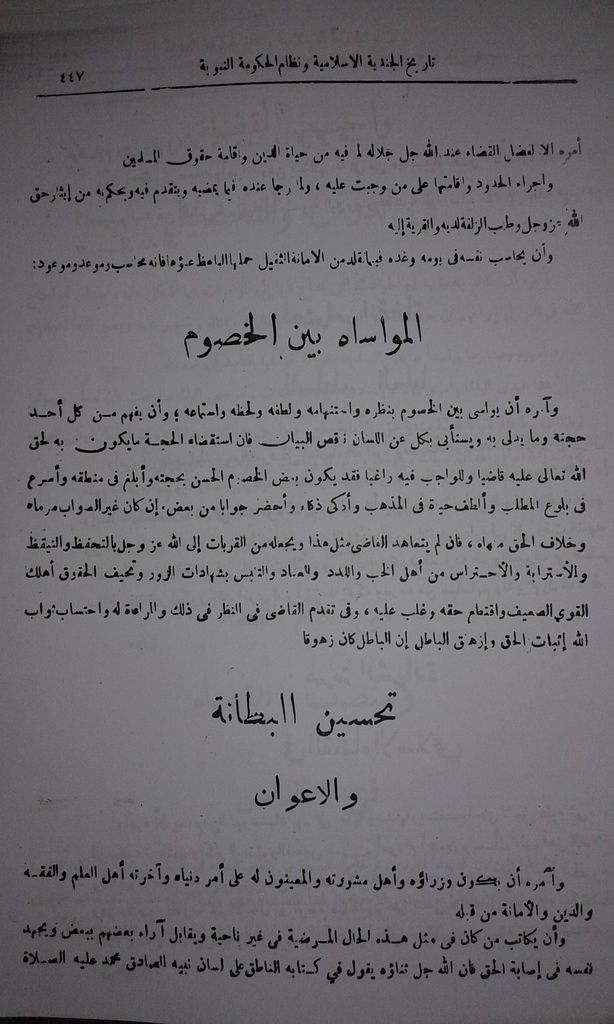 تاريخ الجندية الاسلامية ونظام الحكومة النبوية
٤٤٧
أمره الا لفضل القضاء عند الله جل جلاله لما فيه من حياة الدين واقامة حقوق المسلمين
واجراء الحدود واقامتها على من وجبت عليه ، ولما رجا عنده فيما يمضيه ويتقدم فيه ويحكم به من إيثار حق
الله عز وجل وطلب الزلفة لديه والقربة إليه
وأن يحاسب نفسه فى يومه وغده فيما تقلد من الامانة الثقيل حملها الباهظ عبؤها فانه محاسب وموعد وموعود :
المواساه بين الخصوم
وآمره أن يواسى بين الخصوم بنظره واستفهامه ولطفه ولحظه واستماعه ؛ وأن يفهم مـن كل أحـد
حجته وما يدلى به ويستأنى بكل عن اللسان ناقص البيان فان استقضاء الحجة مايكون به لحق
الله تعالى عليه قاضيا وللواجب فيه راغبا فقد يكون بعض الخصوم الحسن بحجته وأبلغ فى منطقه وأسرع
فى بلوغ المطلب وألطف حيرة فى المذهب وأذكى ذكاء وأحضر جوابا من بعض، إن كان غير الصواب مرماه
وخلاف الحق مهماه ، فان لم يتعاهد القاضى مثل هذا ويجعله من القربات إلى الله عز وجل بالتحفظ والتيقظ
والاسترابة والاحتراس من أهل الخب واللدد والعناد والتلبس بشهادات الزور وتحيف الحقوق أهلك
القوي الضعيف واقتطع حقه وغلب عليه ، وفى تقدم القاضى فى النظر فى ذلك والمراعاة له واحتساب ثواب
الله إثبات الحق وإزهاق الباطل إن الباطل كان زهوقا
تحسين البطانة
والاعوان
وآمره أن يكون وزراؤه وأهل مشورته والمعينون له على أمر دنياه وآخرته أهل العلم والفقـه
والدين والأمانة من قبله
وأن يكاتب من كان فى مثل هـذه الحال المـرضية فى غير ناحية ويقابل آراء بعضهم ببعض ويجهد
نفسه فى إصابة الحق فان الله جل ثناؤه يقول في كـتابه الناطق على لسان نبيه الصادق محمد عليه الصـلاة